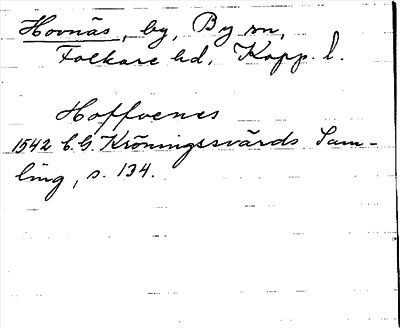 Hovnäs, by, By sn,
Folkare hd, Kopp. l.
Hoffvenes
1542 C. G. Kröningssvärds Sam-
ling, s. 134.